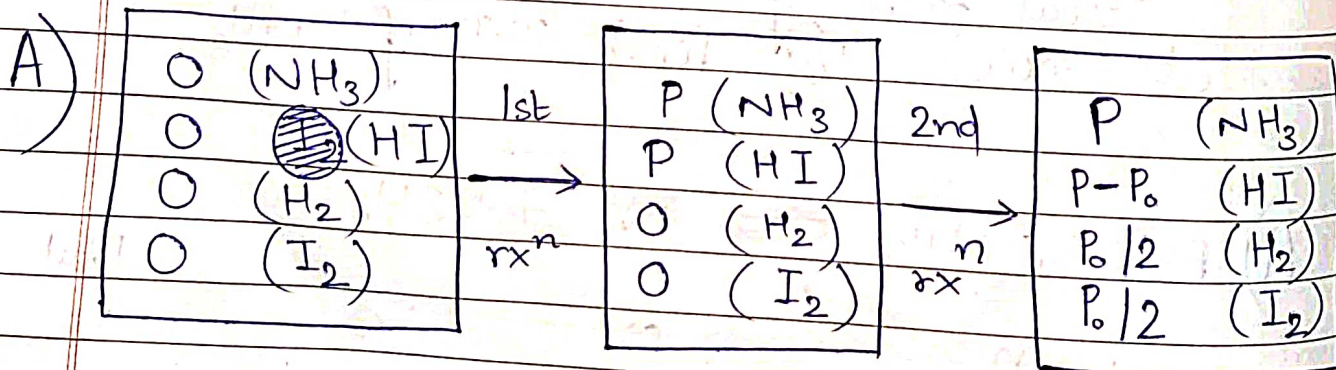 A)
O (NH₃)
O (HI)
O (H₂)
O (I₂)
1st
rxⁿ
P (NH₃)
P (HI)
O (H₂)
O (I₂)
2nd
rxⁿ
P (NH₃)
P-P₀ (HI)
P₀/2 (H₂)
P₀/2 (I₂)